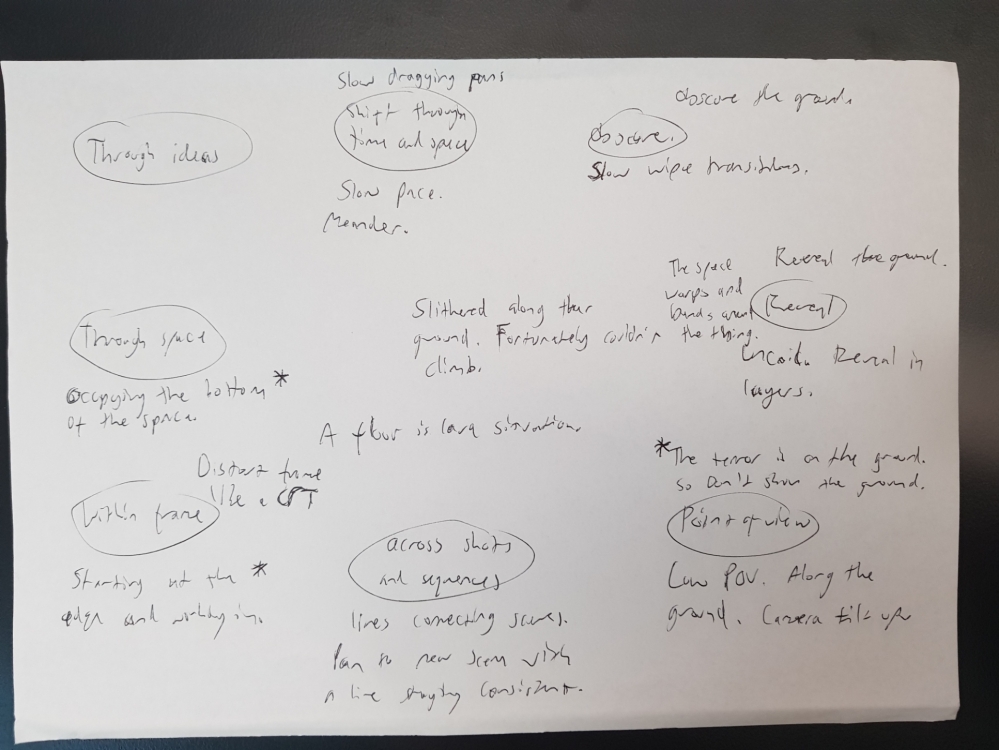 Slow dragging pans
Shift through
time and space
Through ideas
Slow pace.
Meander.
Obscure the ground.
Obscure.
Slow wipe transitions.
Through space
Occupying the bottom *
of the space.
Slithered along the
ground. Fortunately couldn't
climb.
A floor is lava situation.
The space
warps and
bends around
the thing.
Reveal the ground.
Reveal
Uncoil. Reveal in
layers.
Distort frame
like a CRT
Within frame
Starting at the *
edge and working in.
across shots
and sequences
lines connecting scenes.
Pan to new scene with
a line staying consistent.
*The terror is on the ground.
So Don't show the ground.
Point of view
Low POV. Along the
ground. Camera tilt up